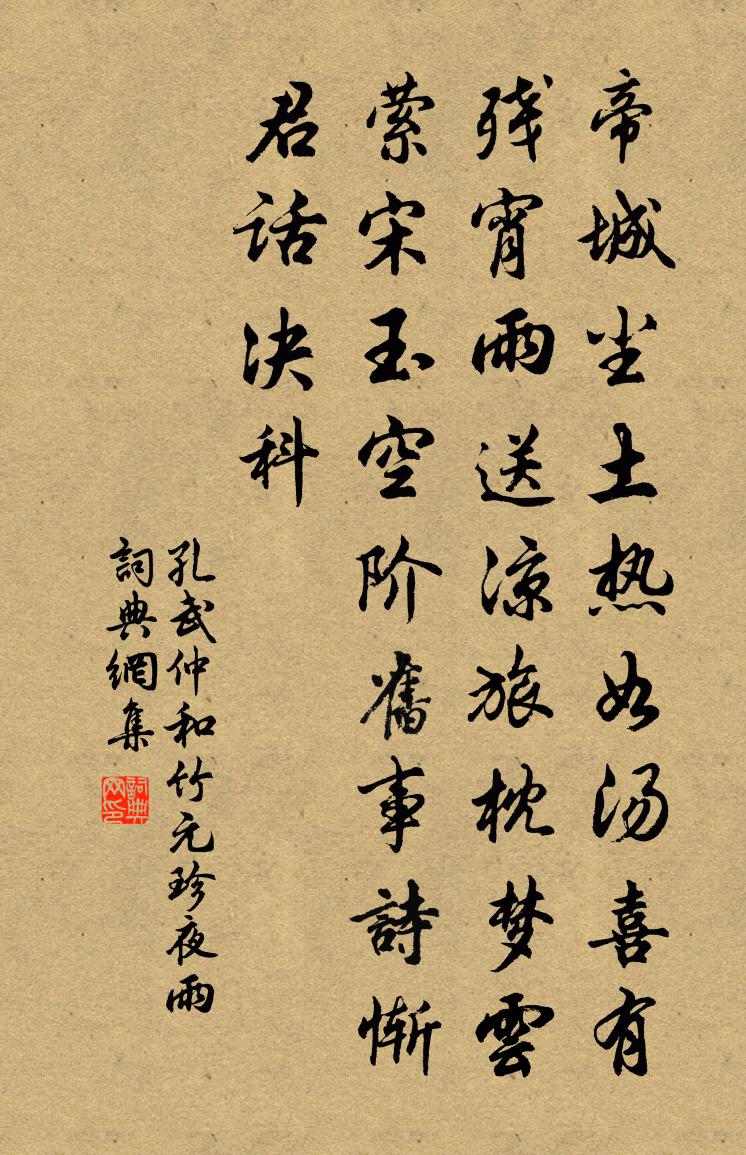 帝城尘土热如汤喜有
残宵雨送凉旅枕梦雲
萦宋玉空阶舊事詩惭
君话决科
孔武仲和竹元珍夜雨
詞典網集
詞典网印